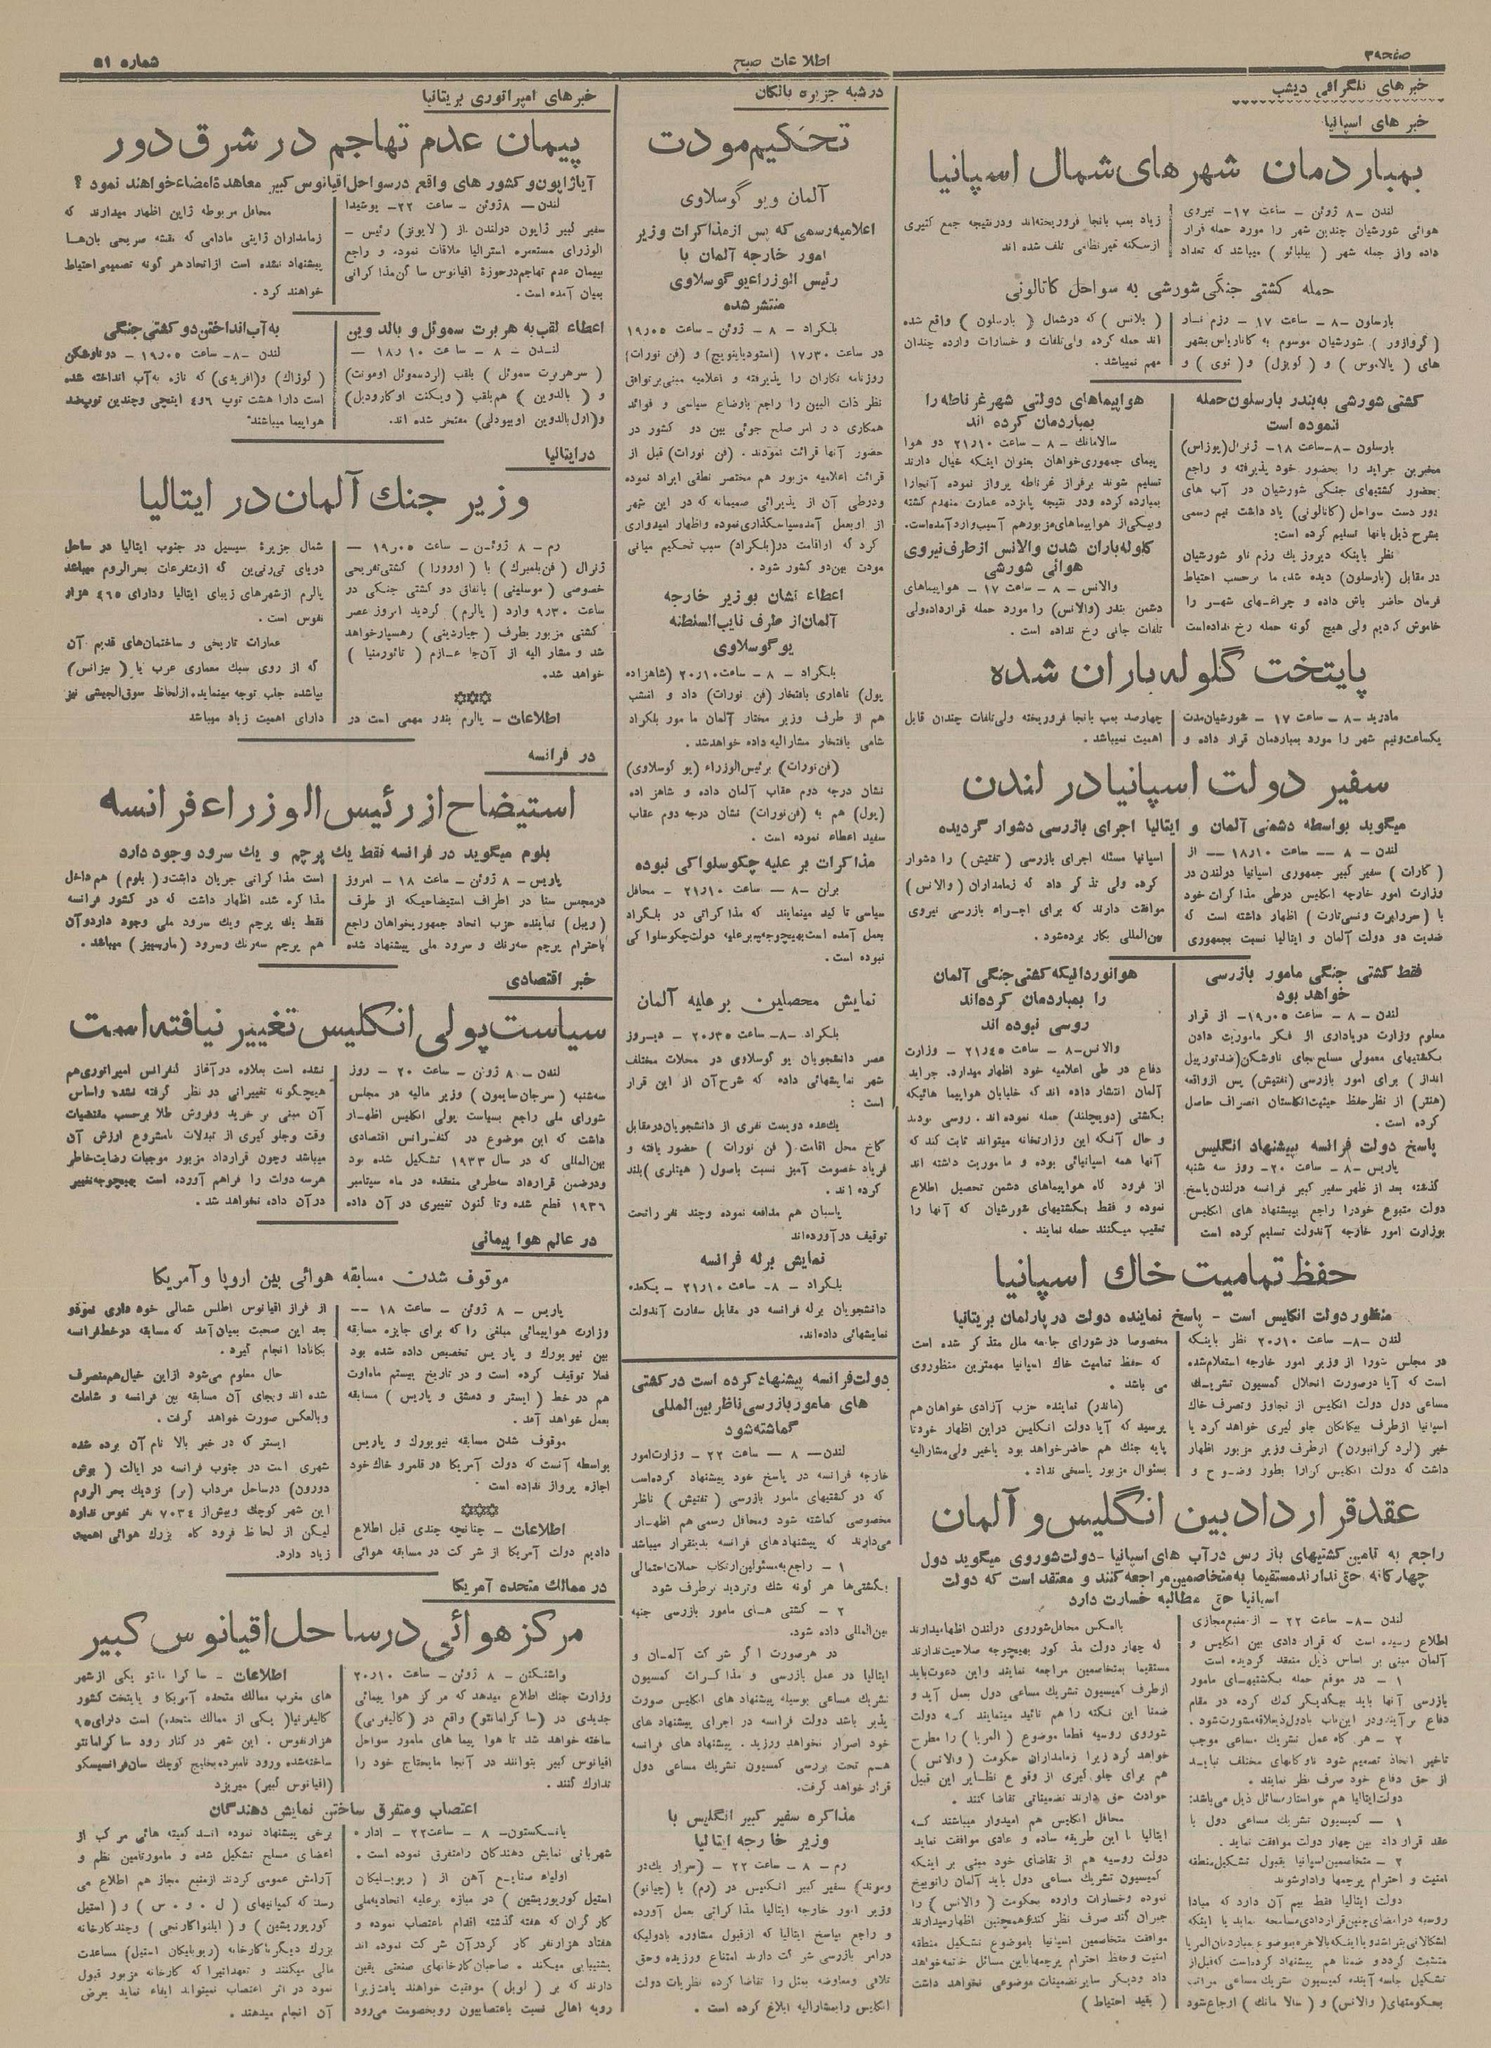 صفحه۳۹
اطلاعات صبح
شماره ۵۱
خبرهای تلگرافی دیشب
خبر های اسپانیا
بمباردمان شهرهای شمال اسپانیا
لندن -۸ ژوئن - ساعت ۱۷- نیروی
هوائی شورشیان چندین شهر را مورد حمله قرار
داده واز جمله شهر ( بیلبائو ) میباشد که تعداد
زیاد بمب بآنجا فروریخته‌اند ودرنتیجه جمع کثیری
ازسکنه غیرنظامی تلف شده اند
حمله کشتی جنگی شورشی به سواحل کاتالونی
بارسلون -۸- ساعت ۱۷ - رزم ناو
شورشیان موسوم به کاناریاس بشهر
( بلانس ) که درشمال ( بارسلون ) واقع شده
اند حمله کرده ولی‌تلفات و خسارات وارده چندان
مهم نمیباشد.
کشتی شورشی به‌بندر بارسلون‌حمله
ننموده است
بارسلون -۸-ساعت ۱۸- ژنرال(پوزاس)
مخبرین جراید را بحضور خود پذیرفته و راجع
بحضور کشتیهای جنگی شورشیان در آب های
دور دست سواحل (کاتالونی) یاد داشت نیم رسمی
بشرح ذیل بآنها تسلیم کرده است:
نظر باینکه دیروز یك رزم ناو شورشیان
در مقابل (بارسلون) دیده شده ما برحسب احتیاط
فرمان حاضر باش داده و چراغهای شهر را
خاموش کردیم ولی هیچ گونه حمله رخ نداده‌است
هواپیماهای دولتی شهرغرناطه را
بمباردمان کرده اند
سالامانك - ۸ - ساعت ۲۱٫۱۰ دو هوا
پیمای جمهوری‌خواهان بعنوان اینکه خیال دارند
تسلیم شوند برفراز غرناطه پرواز نموده آنجارا
بمبارده کرده ودر نتیجه پانزده عمارت منهدم گشته
وبیکی‌از هواپیماهای‌مزبورهم آسیب‌واردآمده‌است.
گلوله‌باران شدن والانس ازطرف‌نیروی
هوائی شورشی
والانس - ۸ - ساعت ۱۷ - هواپیماهای
دشمن بندر (والانس) را مورد حمله قرارداده‌ولی
تلفات جانی رخ نداده است .
پایتخت گلوله‌باران شده
مادرید -۸ - ساعت ۱۷ - شورشیان‌مدت
یکساعت‌ونیم شهر را مورد بمباردمان قرار داده و
چهارصد بمب بآنجا فروریخته ولی‌تلفات چندان قابل
اهمیت نمیباشد .
سفیر دولت اسپانیادر لندن
میگوید بواسطه دشمنی آلمان و ایتالیا اجرای بازرسی دشوار گردیده
لندن - ۸ -- ساعت ۱۸٫۱۰ -- از
سفیر کبیر جمهوری اسپانیا درلندن در
وزارت امور خارجه انگلیس درطی مذاکرات خود
با ( سررابرت ونسی‌تارت ) اظهار داشته است که
ضدیت دو دولت آلمان و ایتالیا نسبت بجمهوری
اسپانیا مسئله اجرای بازرسی (تفتیش) را دشوار
کرده ولی تذکر داد که زمامداران ( والانس )
موافقت دارند که برای اجراء بازرسی نیروی
بین‌المللی بکار برده‌شود.
فقط کشتی جنگی مامور بازرسی
خواهد بود
لندن - ۸ - ساعت ۱۹٫۰۵- از قرار
معلوم وزارت دریاداری از فکر ماموریت دادن
بکشتیهای معمولی مسلح بجای ناوشکن(ضدتورپیل
انداز ) برای امور بازرسی (تفتیش) پس ازواقعه
(هنتر) از نظرحفظ حیثیت‌انگلستان انصراف حاصل
کرده است .
پاسخ دولت فرانسه بپیشنهاد انگلیس
پاریس -۸- ساعت ۲۰- روز سه شنبه
گذشته بعد از ظهر سفیر کبیر فرانسه درلندن‌پاسخ
دولت متبوع خودرا راجع بپیشنهاد های انگلیس
بوزارت امور خارجه آندولت تسلیم کرده است
هوانوردانیکه کشتی جنگی آلمان
را بمباردمان کرده‌اند
روسی نبوده اند
والانس-۸ - ساعت ۲۱٫۴۵ - وزارت
دفاع در طی اعلامیه خود اظهار میدارد. جراید
آلمان انتشار داده اند که خلبانان هواپیما هائیکه
بکشتی (دویچلند) حمله نموده‌اند. روسی بودند
و حال آنکه این وزارتخانه میتواند ثابت کند که
آنها همه اسپانیائی بوده و ماموریت داشته اند
از فرود گاه هواپیماهای دشمن تحصیل اطلاع
نموده و فقط بکشتیهای شورشیان که آنها را
تعقیب میکنند حمله نمایند .
حفظ تمامیت خاك اسپانیا
منظور دولت انگلیس است - پاسخ نماینده دولت در پارلمان بریتانیا
لندن -۸- ساعت ۲۰٫۱۰ نظر باینکه
در مجلس شورا از وزیر امور خارجه استعلام‌شده
است که آیا درصورت انحلال کمسیون تشریك
مساعی دول دولت انگلیس از تجاوز وتصرف خاك
اسپانیا ازطرف بیگانگان جلو گیری خواهد کرد یا
خیر (لرد کرانبورن) ازطرف وزیر مزبور اظهار
داشت که دولت انگلیس کرارا بطور وضوح و
مخصوصا درشورای جامعه ملل متذکر شده است
که حفظ تمامیت خاك اسپانیا مهمترین منظوراوی
می باشد .
(ماندر) نماینده حزب آزادی خواهان هم
پرسید که آیا دولت انگلیس دراین اظهار خودتا
پایه جنك هم حاضرخواهد بود یاخیر ولی‌مشارالیه
بسئوال مزبور پاسخی نداد .
عقدقراردادبین انگلیس و آلمان
راجع به تامین کشتیهای باز رس درآب های اسپانیا -دولت‌شوروی میگوید دول
چهارگانه حق ندارند مستقیما به‌متخاصمین مراجعه کنند و معتقد است که دولت
اسپانیا حق مطالبه خسارت دارد
لندن -۸- ساعت ۲۲ - ازمنبع‌مجازی
اطلاع رسیده است که قرار دادی بین انگلیس و
آلمان مبنی بر اساس ذیل منعقد گردیده است
۱ - در موقع حمله بکشتیهای مامور
بازرسی آنها باید بیکدیگر کمك کرده در مقام
۲ - هر گاه عمل تشریك مساعی موجب
تاخیر اتخاذ تصمیم شود ناوگانهای مختلف نباید
از حق دفاع خود صرف نظر نمایند .
دولت‌ایتالیا هم خواستارمسائل ذیل می‌باشد:
۱ - کمیسیون تشریك مساعی دول با
عقد قرار داد بین چهار دولت موافقت نماید .
۲ - متخاصمین‌اسپانیا بقبول تشکیل‌منطقه
امنیت و احترام پرچمها وادارشوند
دولت ایتالیا فقط بیم آن دارد که مبادا
بحکومتهای( والانس) و ( سالا مانك ) ارجاع‌شود
بالعکس محافل‌شوروی درلندن اظهارمیدارند
که چهار دولت مذ کور بهیچوجه صلاحیت‌ندارند
مستقیما بمتخاصمین مراجعه نمایند واین دعوت‌باید
ازطرف کمیسیون تشریك مساعی دول بعمل آید و
ضمنا این نکته را هم تائید مینمایند که دولت
شوروی روسیه قطعا موضوع ( المریا ) را مطرح
خواهد کرد زیرا زمامداران حکومت (والانس )
هم برای جلو گیری از وقوع نظایر این قبیل
حوادث حق دارند تضمیناتی تقاضا کنند .
محافل انگلیس هم امیدوار میباشند که
ایتالیا با این طریقه ساده و عادی موافقت نماید
دولت روسیه هم از تقاضای خود مبنی بر اینکه
کمیسیون تشریك مساعی دول باید آلمان راتوبیخ
نموده وخسارات وارده بحکومت ( والانس ) را
جبران کند صرف نظر کندوهمچنین اظهارمیدارند
موافقت متخاصمین اسپانیا باموضوع تشکیل منطقه
امنیت وحفظ احترام پرچمهاباین مسائل خاتمه‌خواهد
داد ودیگر سایرتضمینات موضوعی نخواهد داشت
( بقید احتیاط )
درشبه جزیره بالکان
تحکیم‌مودت
آلمان ویو گوسلاوی
اعلامیه‌رسمی که پس ازمذاکرات وزیر
امور خارجه آلمان با
رئیس الوزراء‌یو گوسلاوی
منتشرشده
بلگراد - ۸ - ژوئن - ساعت ۱۹٫۰۵
در ساعت ۱۷٫۳۰ (استودیانویچ) و (فن نورات)
روزنامه نگاران را پذیرفته و اعلامیه مبنی‌برتوافق
نظر ذات البین را راجع باوضاع سیاسی و فوائد
همکاری در امر صلح جوئی بین دو کشور در
حضور آنها قرائت نمودند . (فن نورات) قبل از
قرائت اعلامیه مزبور هم مختصر نطقی ایراد نموده
ودرطی آن از پذیرائی صمیمانه که در این شهر
از اوبعمل آمده‌سپاسگذاری‌نموده واظهار امیدواری
کرد که اراقامت در(بلگراد) سبب تحکیم مبانی
مودت بین‌دو کشور شود .
اعطاء نشان بوزیر خارجه
آلمان‌از طرف نایب‌السلطنه
یو گوسلاوی
بلگراد - ۸ - ساعت۲۰٫۱۰ (شاهزاده
پول) ناهاری بافتخار (فن نورات) داد و امشب
هم از طرف وزیر مختار آلمان مامور بلگراد
شامی بافتخار مشارالیه داده خواهدشد .
(فن‌نورات) برئیس‌الوزراء (یو گوسلاوی)
نشان درجه دوم عقاب آلمان داده و شاهزاده
(پول) هم به (فن‌نورات) نشان درجه دوم عقاب
سفید اعطاء نموده است .
مذاکرات بر علیه چکوسلواکی نبوده
برلن -۸ - ساعت ۲۱٫۱۰ - محافل
سیاسی تا کید مینمایند که مذاکراتی در بلگراد
بعمل آمده است‌بهیچوجه‌برعلیه دولت‌چکوسلواکی
نبوده است .
نمایش محصلین بر علیه آلمان
بلگراد -۸- ساعت ۲۰٫۳۵ - دیروز
عصر دانشجویان یو گوسلاوی در محلات مختلف
شهر نمایشهائی داده که شرح‌آن از این قرار
است :
یك‌عده دویست نفری از دانشجویان‌درمقابل
کاخ محل اقامت( فن نورات ) حضور یافته و
فریاد خصومت آمیز نسبت باصول ( هیتلری )بلند
کرده اند .
پاسبان هم مدافعه نموده وچند نفرراتحت
توقیف درآورده‌اند
نمایش برله فرانسه
بلگراد - ۸- ساعت ۲۱٫۱۰ - یکعده
دانشجویان برله فرانسه در مقابل سفارت آندولت
نمایشهائی داده‌اند.
دولت‌فرانسه پیشنهاد کرده است درکشتی
های مامور‌بازرسی‌ناظر‌بین‌المللی
گماشته‌شود
لندن- ۸ - ساعت ۲۲ - وزارت‌امور
خارجه فرانسه در پاسخ خود پیشنهاد کرده‌است
که در کشتیهای مامور بازرسی (تفتیش) ناظر
مخصوصی گماشته شود ومحافل رسمی هم اظهار
می‌دارند که پیشنهادهای فرانسه بدینقرار میباشد
۱ - راجع به‌مسئولین‌ارتکاب حملات‌احتمالی
بکشتی‌ها هر گونه شك وتردید برطرف شود
۲ - کشتی های مامور بازرسی جنبه
بین‌المللی داده شود.
در هرصورت اگر شرکت آلمان و
ایتالیا در عمل بازرسی و مذاکرات کمسیون
تشریك مساعی بوسیله پیشنهاد های انگلیس صورت
پذیر باشد دولت فرانسه در اجرای پیشنهاد های
خود اصرار نخواهد ورزید . پیشنهاد های فرانسه
هم تحت بررسی کمسیون تشریك مساعی دول
قرار خواهد گرفت.
مذاکره سفیر کبیر انگلیس با
وزیر خارجه ایتالیا
رم - ۸ - ساعت ۲۲ -
سفیر کبیر انگلیس در (رم) با (چیانو)
وزیر امور خارجه ایتالیا مذاکراتی بعمل آورده
و راجع بپاسخ ایتالیا که‌ازقبول مشاوره بادولیکه
درامر بازرسی شرکت دارند امتناع ورزیده وحق
تلافی ومعاوضه بمثل را تقاضا کرده نظریات دولت
انگلیس رابمشارالیه ابلاغ کرده است .
خبرهای امپراتوری بریتانیا
پیمان عدم تهاجم در شرق دور
آیاژاپون‌و کشور های واقع درسواحل‌اقیانوس‌کبیر معاهدهٔ‌امضاءخواهند نمود ؟
لندن - ۸ژوئن - ساعت ۲۲- یوشیدا
سفیر کبیر ژاپون درلندن از (لایونز) رئیس -
الوزرای مستعمره استرالیا ملاقات نموده و راجع
بپیمان عدم تهاجم‌درحوزهٔ اقیانوس ساکن‌مذاکراتی
بمیان آمده است .
محافل مربوطه ژاپن اظهار میدارند که
زمامداران ژاپنی مادامی که نقشه صریحی بآن‌ها
پیشنهاد نشده است ازاتخاذهر گونه تصمیمی‌احتیاط
خواهند کرد .
اعطاء لقب به هربرت سموئل و بالدوین
لندن - ۸ - ساعت ۱۸٫۱۰ -
( سرهربرت سموئل ) بلقب (لردسموئل اومونت)
و ( بالدوین ) هم‌بلقب (ویکنت اوکارودیل)
و(ارل‌بالدوین اوبیودلی) مفتخر شده اند.
به‌آب‌انداختن‌دو کشتی‌جنگی
لندن -۸- ساعت ۱۹٫۰۵- دو ناوشکن
و(افریدی) که تازه به‌آب انداخته شده
است دارا هشت توپ ۴و۶ اینچی وچندین توپ‌ضد
هواپیما میباشند.
درایتالیا
وزیر جنك آلمان در ایتالیا
رم - ۸ ژوئن - ساعت ۱۹٫۰۵ -
ژنرال ( فن‌بلمبرگ ) با ( اوورا ) کشتی‌تفریحی
خصوصی ( موسلینی ) باتفاق دو کشتی جنگی در
ساعت ۹٫۳۰ وارد ( پالرم ) گردید امروز عصر
کشتی مزبور بطرف رهسپارخواهد
شد و مشار الیه از آن‌جا عازم
خواهد شد.
***
اطلاعات - پالرم بندر مهمی است در
شمال جزیرهٔ سیسیل در جنوب ایتالیا در ساحل
دریای تی‌رنی‌ین که ازمتفرعات بحرالروم میباشد
پالرم ازشهرهای زیبای ایتالیا ودارای ۴۶۵ هزار
نفوس است .
عمارات تاریخی و ساختمان‌های قدیم آن
که از روی سبك معماری عرب یا ( بیزانس )
بناشده جلب توجه مینماید.ازلحاظ سوق‌الجیشی نیز
دارای اهمیت زیاد میباشد
در فرانسه
استیضاح از رئیس الوزراء فرانسه
بلوم میگوید در فرانسه فقط یك پرچم و یك سرود وجود دارد
پاریس - ۸ ژوئن - ساعت ۱۸ - امروز
درمجلس سنا در اطراف استیضاحیکه از طرف
(ریبل) نماینده حزب اتحاد جمهوریخواهان راجع
باحترام پرچم سه‌رنك و سرود ملی پیشنهاد شده
است مذاکراتی جریان داشت‌و( بلوم ) هم‌داخل
مذاکره شده اظهار داشت که در کشور فرانسه
فقط یك پرچم ویك سرود ملی وجود داردوآن
هم پرچم سه‌رنك وسرود (مارسییز) میباشد .
خبر اقتصادی
سیاست‌پولی انگلیس تغییر نیافته‌است
لندن - ۸ ژوئن - ساعت ۲۰ - روز
سه‌شنبه (سرجان‌سایمون) وزیر مالیه در مجلس
شورای ملی راجع بسیاست پولی انگلیس اظهار
داشت که این موضوع در کنفرانس اقتصادی
بین‌المللی که در سال ۱۹۳۳ تشکیل شده بود
ودرضمن قرارداد سه‌طرفی منعقده در ماه سپتامبر
۱۹۳۶ قطع شده وتا کنون تغییری در آن داده
نشده است بعلاوه درآغاز کنفرانس امپراتوری‌هم
هیچگونه تغییراتی در نظر گرفته نشده واساس
آن مبنی بر خرید وفروش طلا برحسب مقتضیات
وقت وجلو گیری از تبدلات نامشروع ارزش آن
میباشد وچون قرارداد مزبور موجبات رضایت‌خاطر
هرسه دولت را فراهم آورده است بهیچوجه‌تغییر
درآن داده نخواهد شد .
در عالم هوا پیمائی
موقوف شدن مسابقه هوائی بین اروپا وآمریکا
پاریس - ۸ ژوئن - ساعت ۱۸ --
وزارت هواپیمائی مبلغی را که برای جایزه مسابقه
بین نیویورك و پاریس تخصیص داده شده بود
فعلا توقیف کرده است و در تاریخ بیستم ماه‌اوت
هم در خط ( ایستر و دمشق و پاریس ) مسابقه
بعمل خواهد آمد .
موقوف شدن مسابقه نیویورك و پاریس
بواسطه آنست که دولت آمریکا در قلمرو خاك خود
اجازه پرواز نداده است
***
اطلاعات - چنانچه چندی قبل اطلاع
دادیم دولت آمریکا از شرکت در مسابقه هوائی
از فراز اقیانوس اطلس شمالی خود داری نمودو
بعد این صحبت بمیان‌آمد که مسابقه درخط‌فرانسه
بکانادا انجام گیرد .
حال معلوم می‌شود ازاین خیال‌هم‌منصرف
شده اند وبجای آن مسابقه بین فرانسه و شامات
وبالعکس صورت خواهد گرفت .
ایستر که در خبر بالا نام آن برده شده
شهری است در جنوب فرانسه در ایالت ( بوش
دورون) درساحل مرداب (بر) نزدیك بحر الروم
این شهر کوچك وبیش‌از ۷۰۳۴ نفر نفوس ندارد
لیکن از لحاظ فرود گاه بزرك هوائی اهمیت
زیاد دارد.
در ممالك متحده آمریکا
مرکز هوائی درساحل اقیانوس کبیر
واشنگتن - ۸ ژوئن - ساعت ۲۰٫۱۰
وزارت جنك اطلاع میدهد که مرکز هوا پیمائی
جدیدی در (ساکرامانتو) واقع در (کالیفرنی)
ساخته خواهد شد تا هوا پیما های مامور سواحل
اقیانوس کبیر بتوانند در آنجا مایحتاج خود را
تدارك کنند .
اطلاعات - ساکرامانتو یکی ازشهر
های مغرب ممالك متحده آمریکا و پایتخت کشور
کالیفرنیا( یکی از ممالك متحده) است دارای۹۵
هزارنفوس . این شهر در کنار رود ساکرامانتو
ساخته‌شده ورود نامبرده‌بخلیج کوچك سان‌فرانسیسکو
(اقیانوس کبیر) میریزد
اعتصاب ومتفرق ساختن نمایش دهندگان
یانگستون- ۸ - ساعت۲۲ - اداره
شهربانی نمایش دهندگان رامتفرق نموده است .
اولیاء صنایع آهن از ( ریوبلیکان
استیل کورپوریشین ) در مبارزه برعلیه اتحادیه‌ملی
کارگران که هفته گذشته اقدام باعتصاب نموده و
هفتاد هزارنفر کارگردرآن شرکت نموده اند
پشتیبانی میکند . صاحبان کارخانهای صنعتی یقین
دارند که بر ( لویل ) موفقیت خواهند یافت‌زیرا
رویه اهالی نسبت باعتصابیون روبخصومت می‌رود
برخی پیشنهاد نموده اند کمیته هائی مرکب از
اعضای مسلح تشکیل شده و مامورتامین نظم و
آرامش عمومی گردند ازمنبع مجاز هم اطلاع می
رسد که کمپانیهای ( ل . و . س ) و ( استیل
کورپوریشن ) و وچند‌کارخانه
بزرك دیگر‌با‌کارخانه (ریوبلیکان استیل) مساعدت
مالی میکنند و تعهداتیرا که کارخانه مزبور قبول
نمود در اثر اعتصاب نمیتواند ایفاء نماید بعرض
آن انجام میدهند .